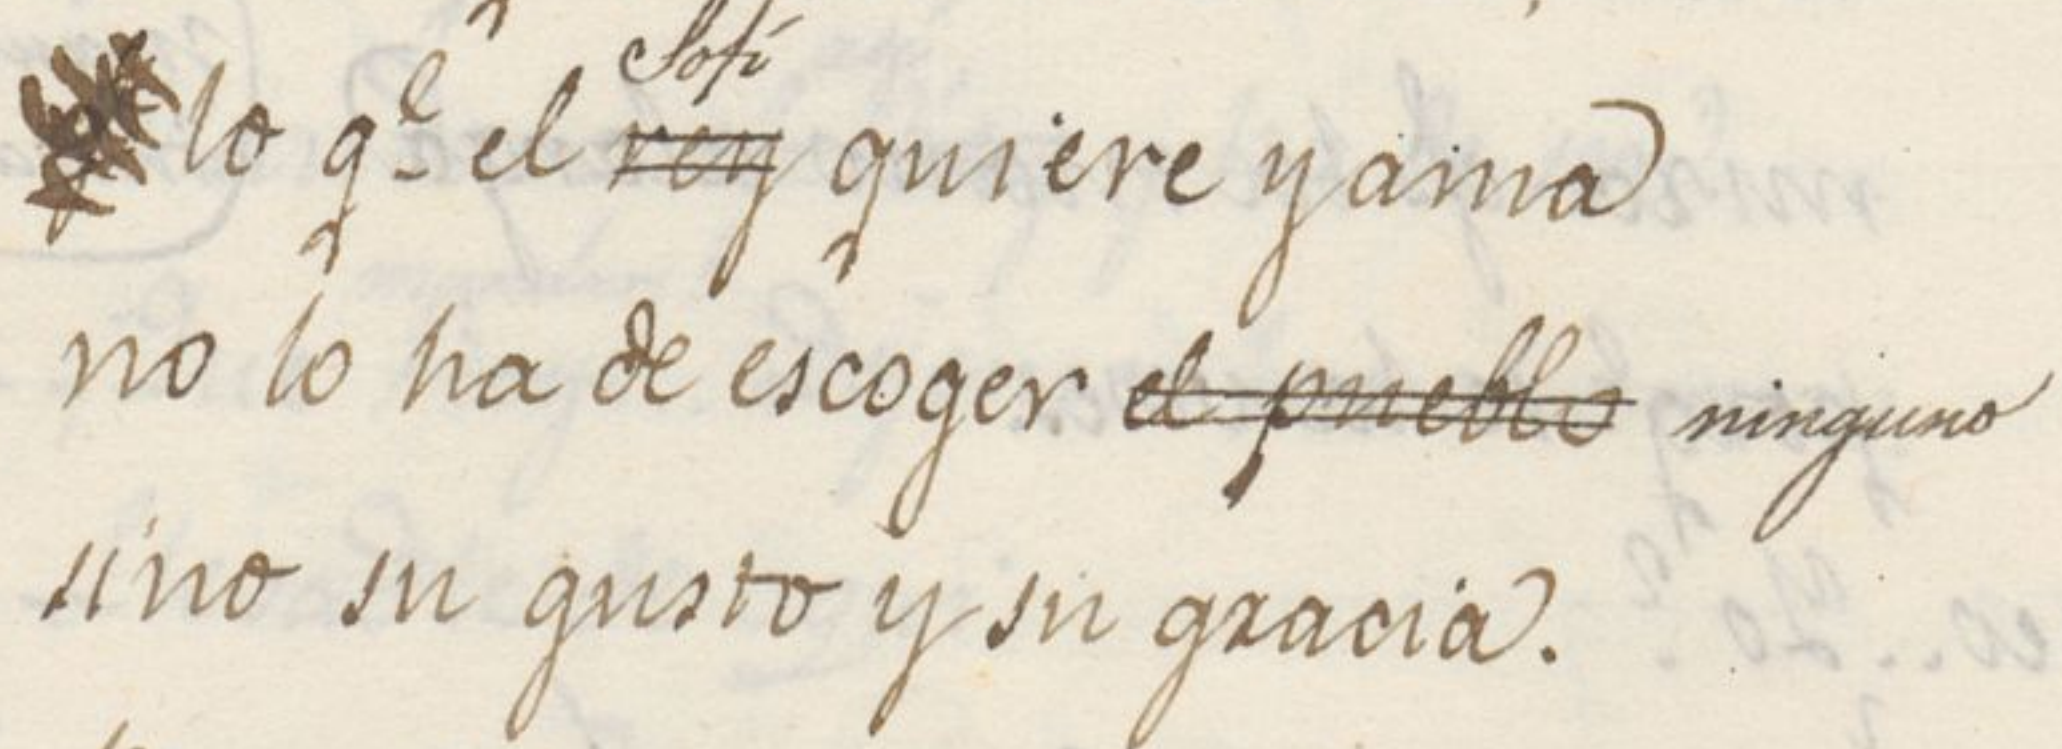 Sofi
lo q.e el rey quiere y ama
no lo ha de escoger el pueblo ninguno
sino su gusto y su gracia.